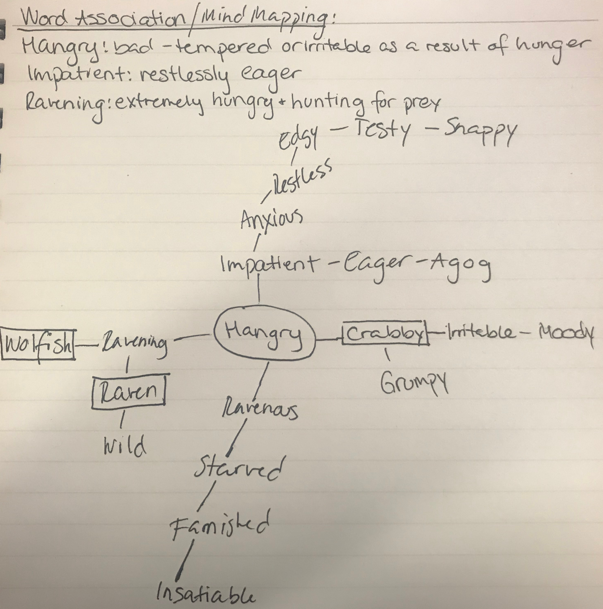 Word Association/Mind Mapping:
Hangry: bad-tempered or irritable as a result of hunger
Impatient: restlessly eager
Ravening: extremely hungry + hunting for prey
Edgy - Testy - Snappy
Restless
Anxious
Impatient - Eager - Agog
Wolfish - Ravening - Hangry - Crabby - Irritable - Moody
Raven
Grumpy
Ravenous
Wild
Starved
Famished
Insatiable